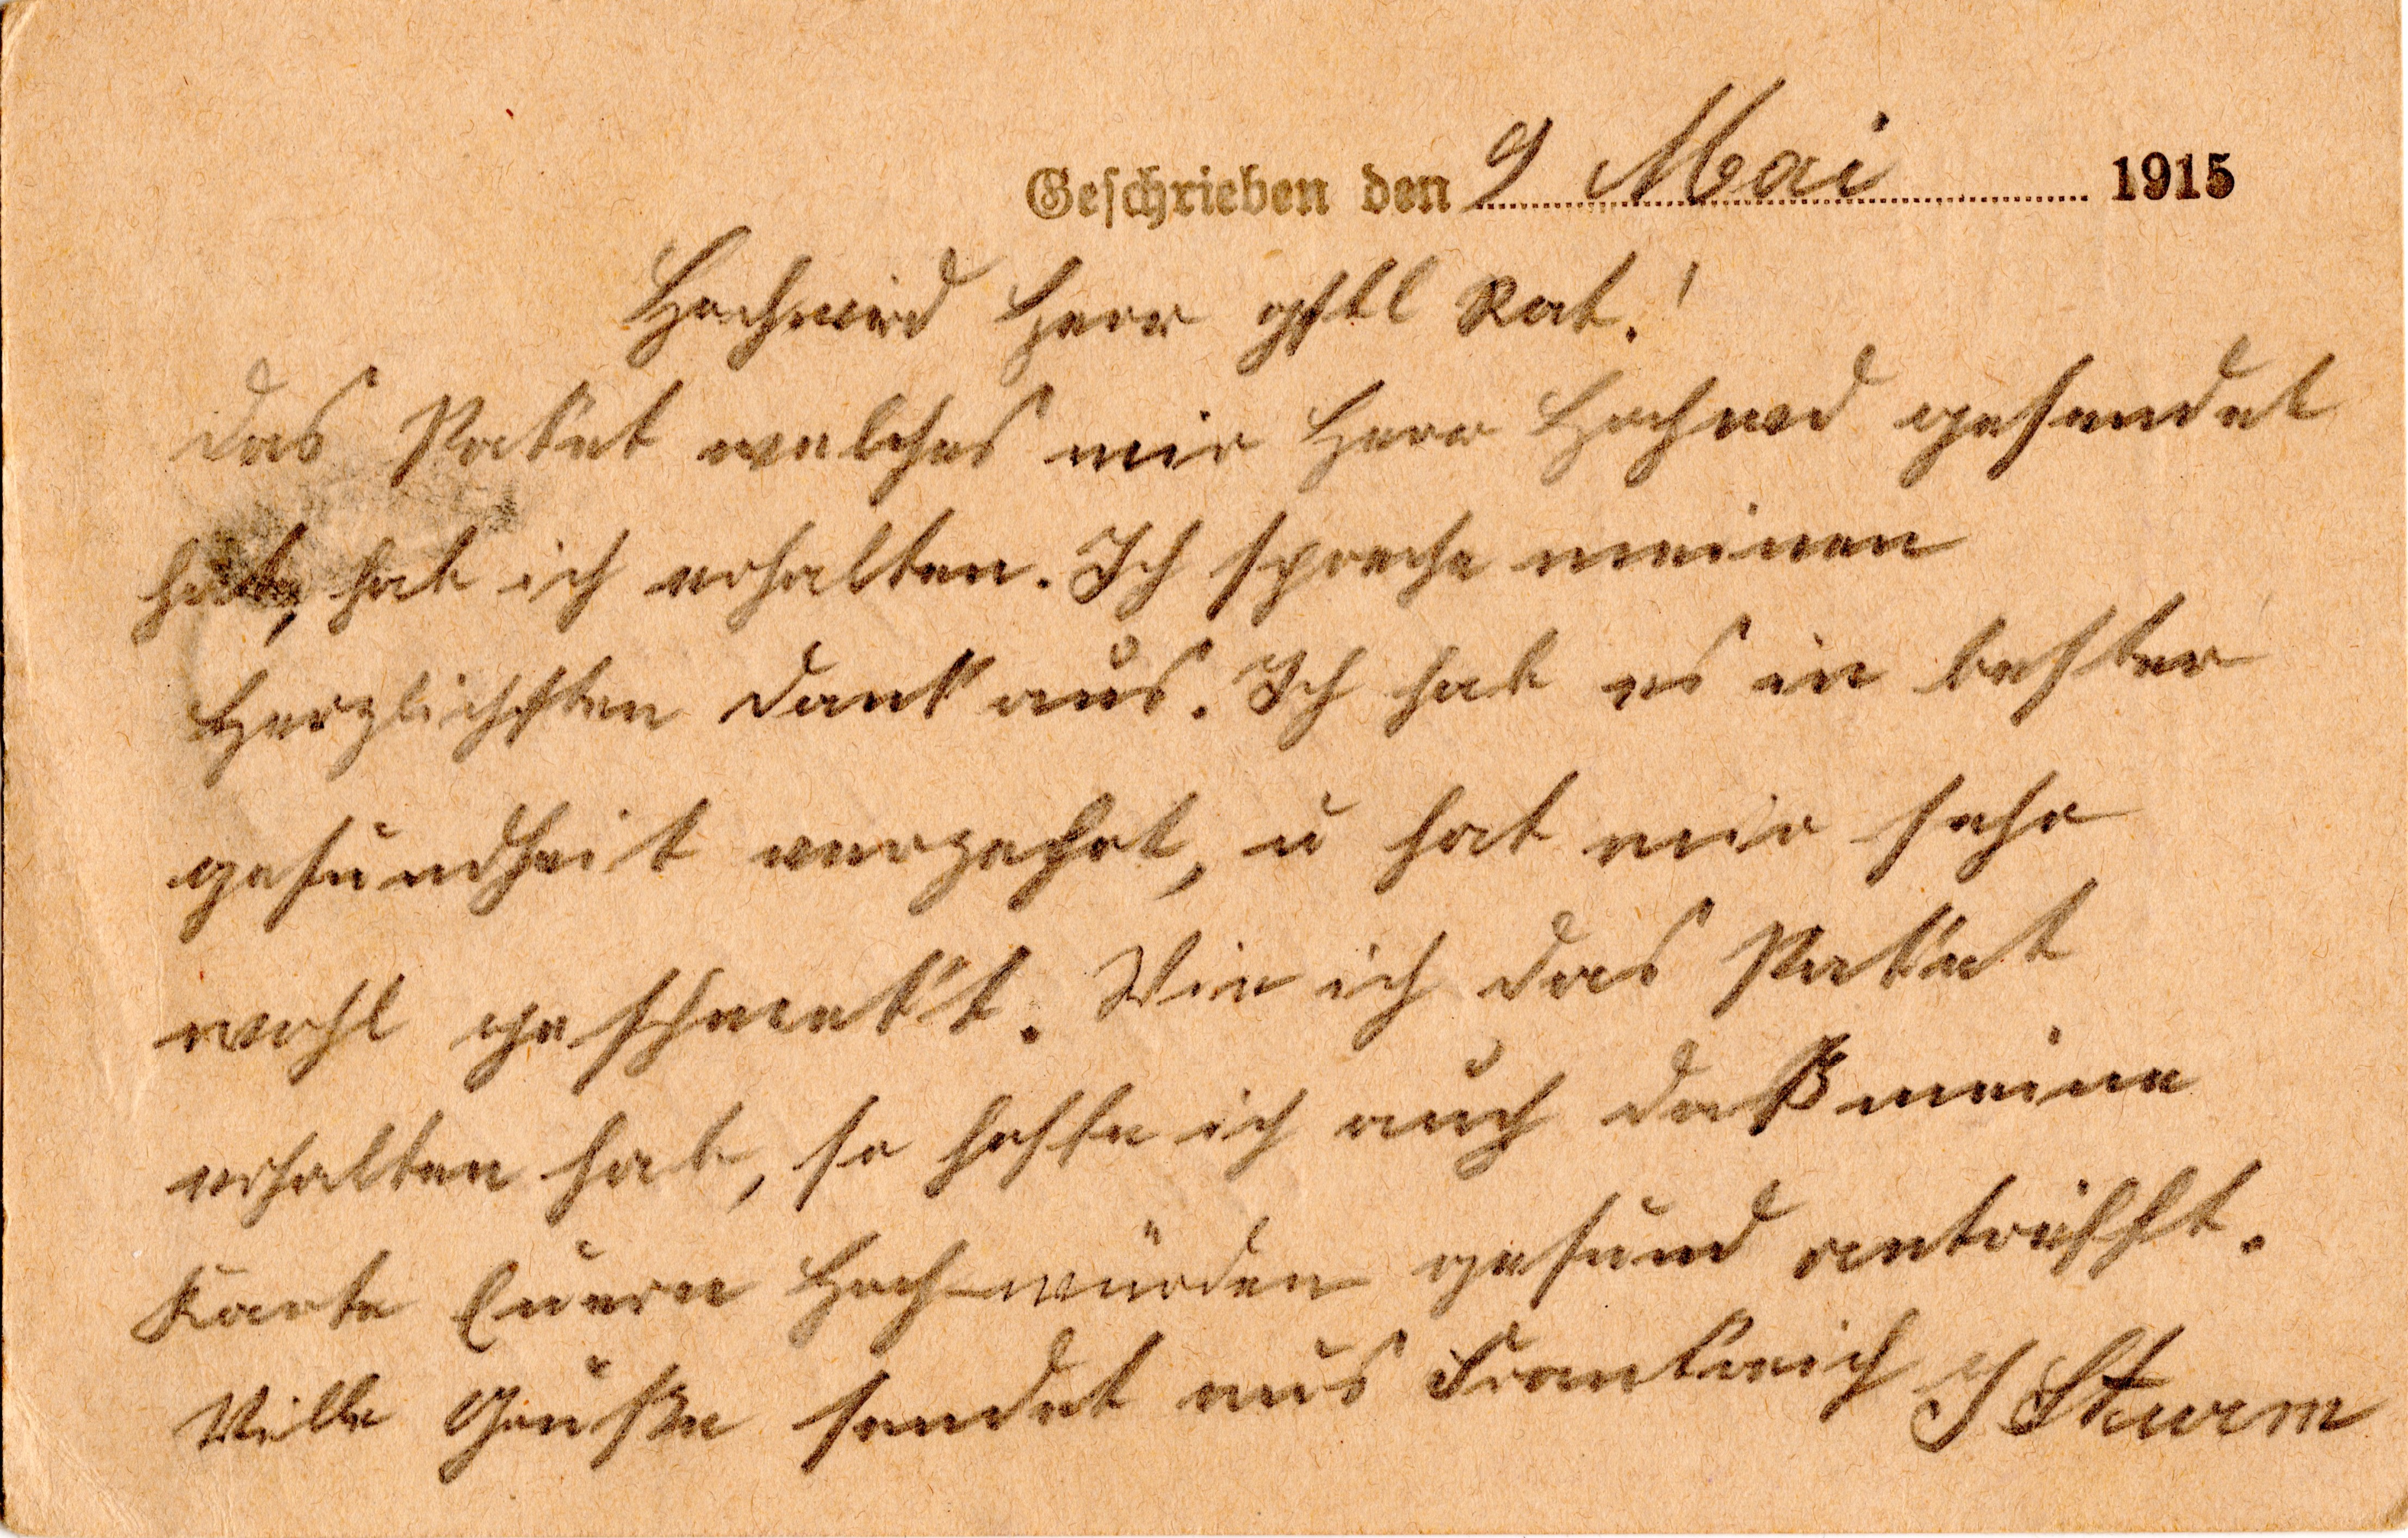 Geschrieben den 9 Mai 1915
Hochwird Herr gstl Rat!
das Paket welches mir Herr Hochwd gesendet
hat, hab ich erhalten. Ich spreche meinen
Herzlichsten Dank aus. Ich hab es in bester
gesundheit verzehrt, u hat mir sehr
wohl geschmekt. Wie ich das Paket
erhalten hab, so hoffe ich auch daß meine
Karte Euern Hochwürden gesund antrifft.
Ville Grüße sendet aus Frankreich J Sturm